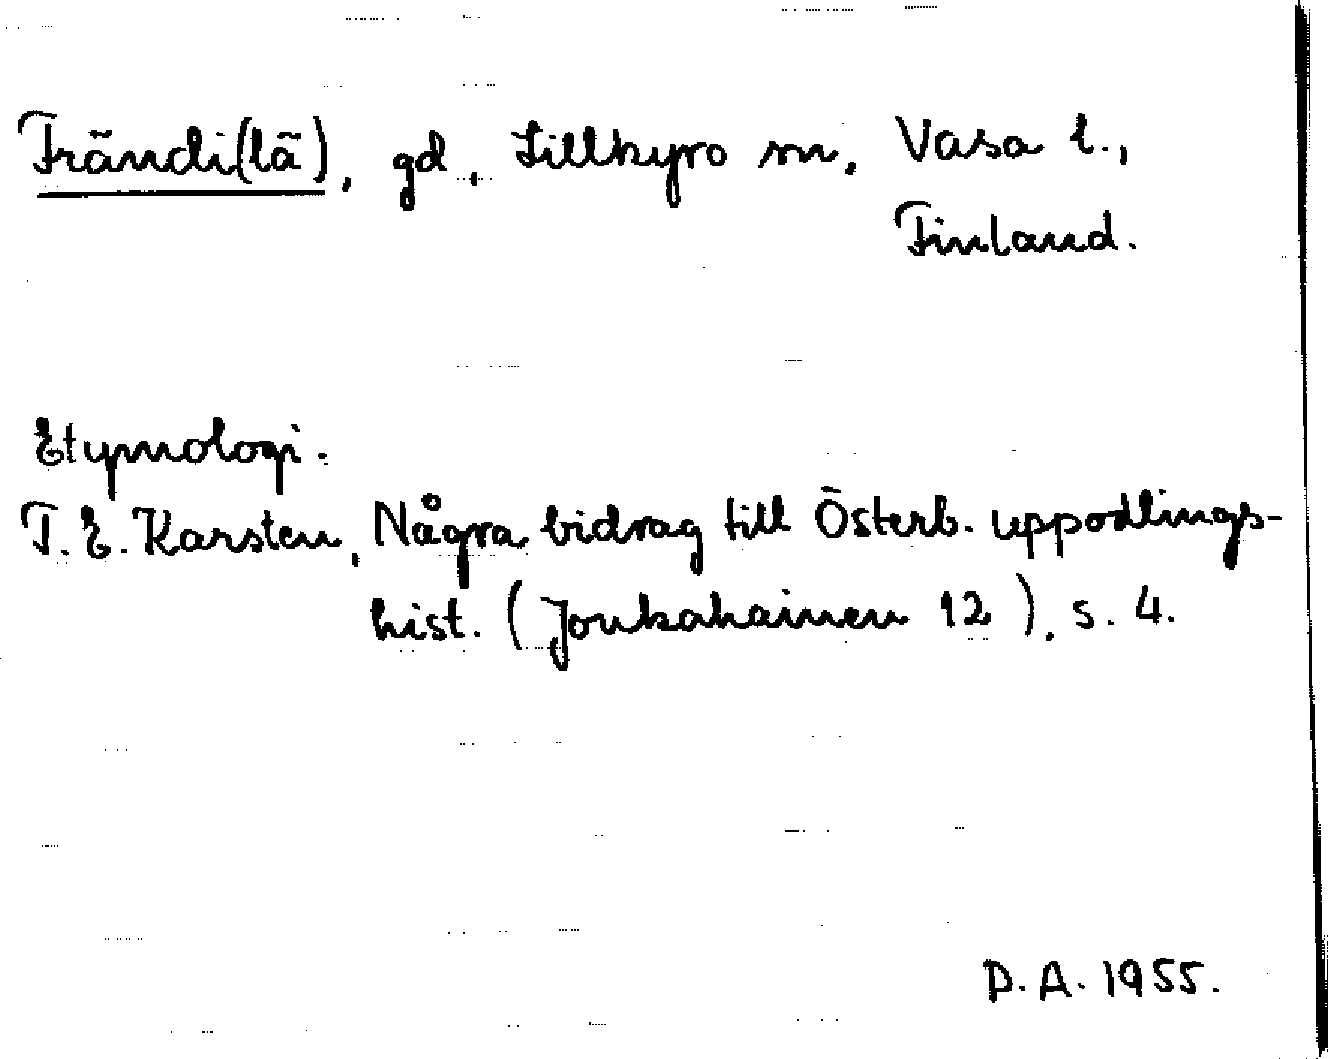 Frändi(lä), gd, Lillkyro sn, Vasa l.,
Finland.
Etymologi.
T. E. Karsten, Några bidrag till Österb. uppodlings-
hist. (Joukahainen 12), s. 4.
D. A. 1955.